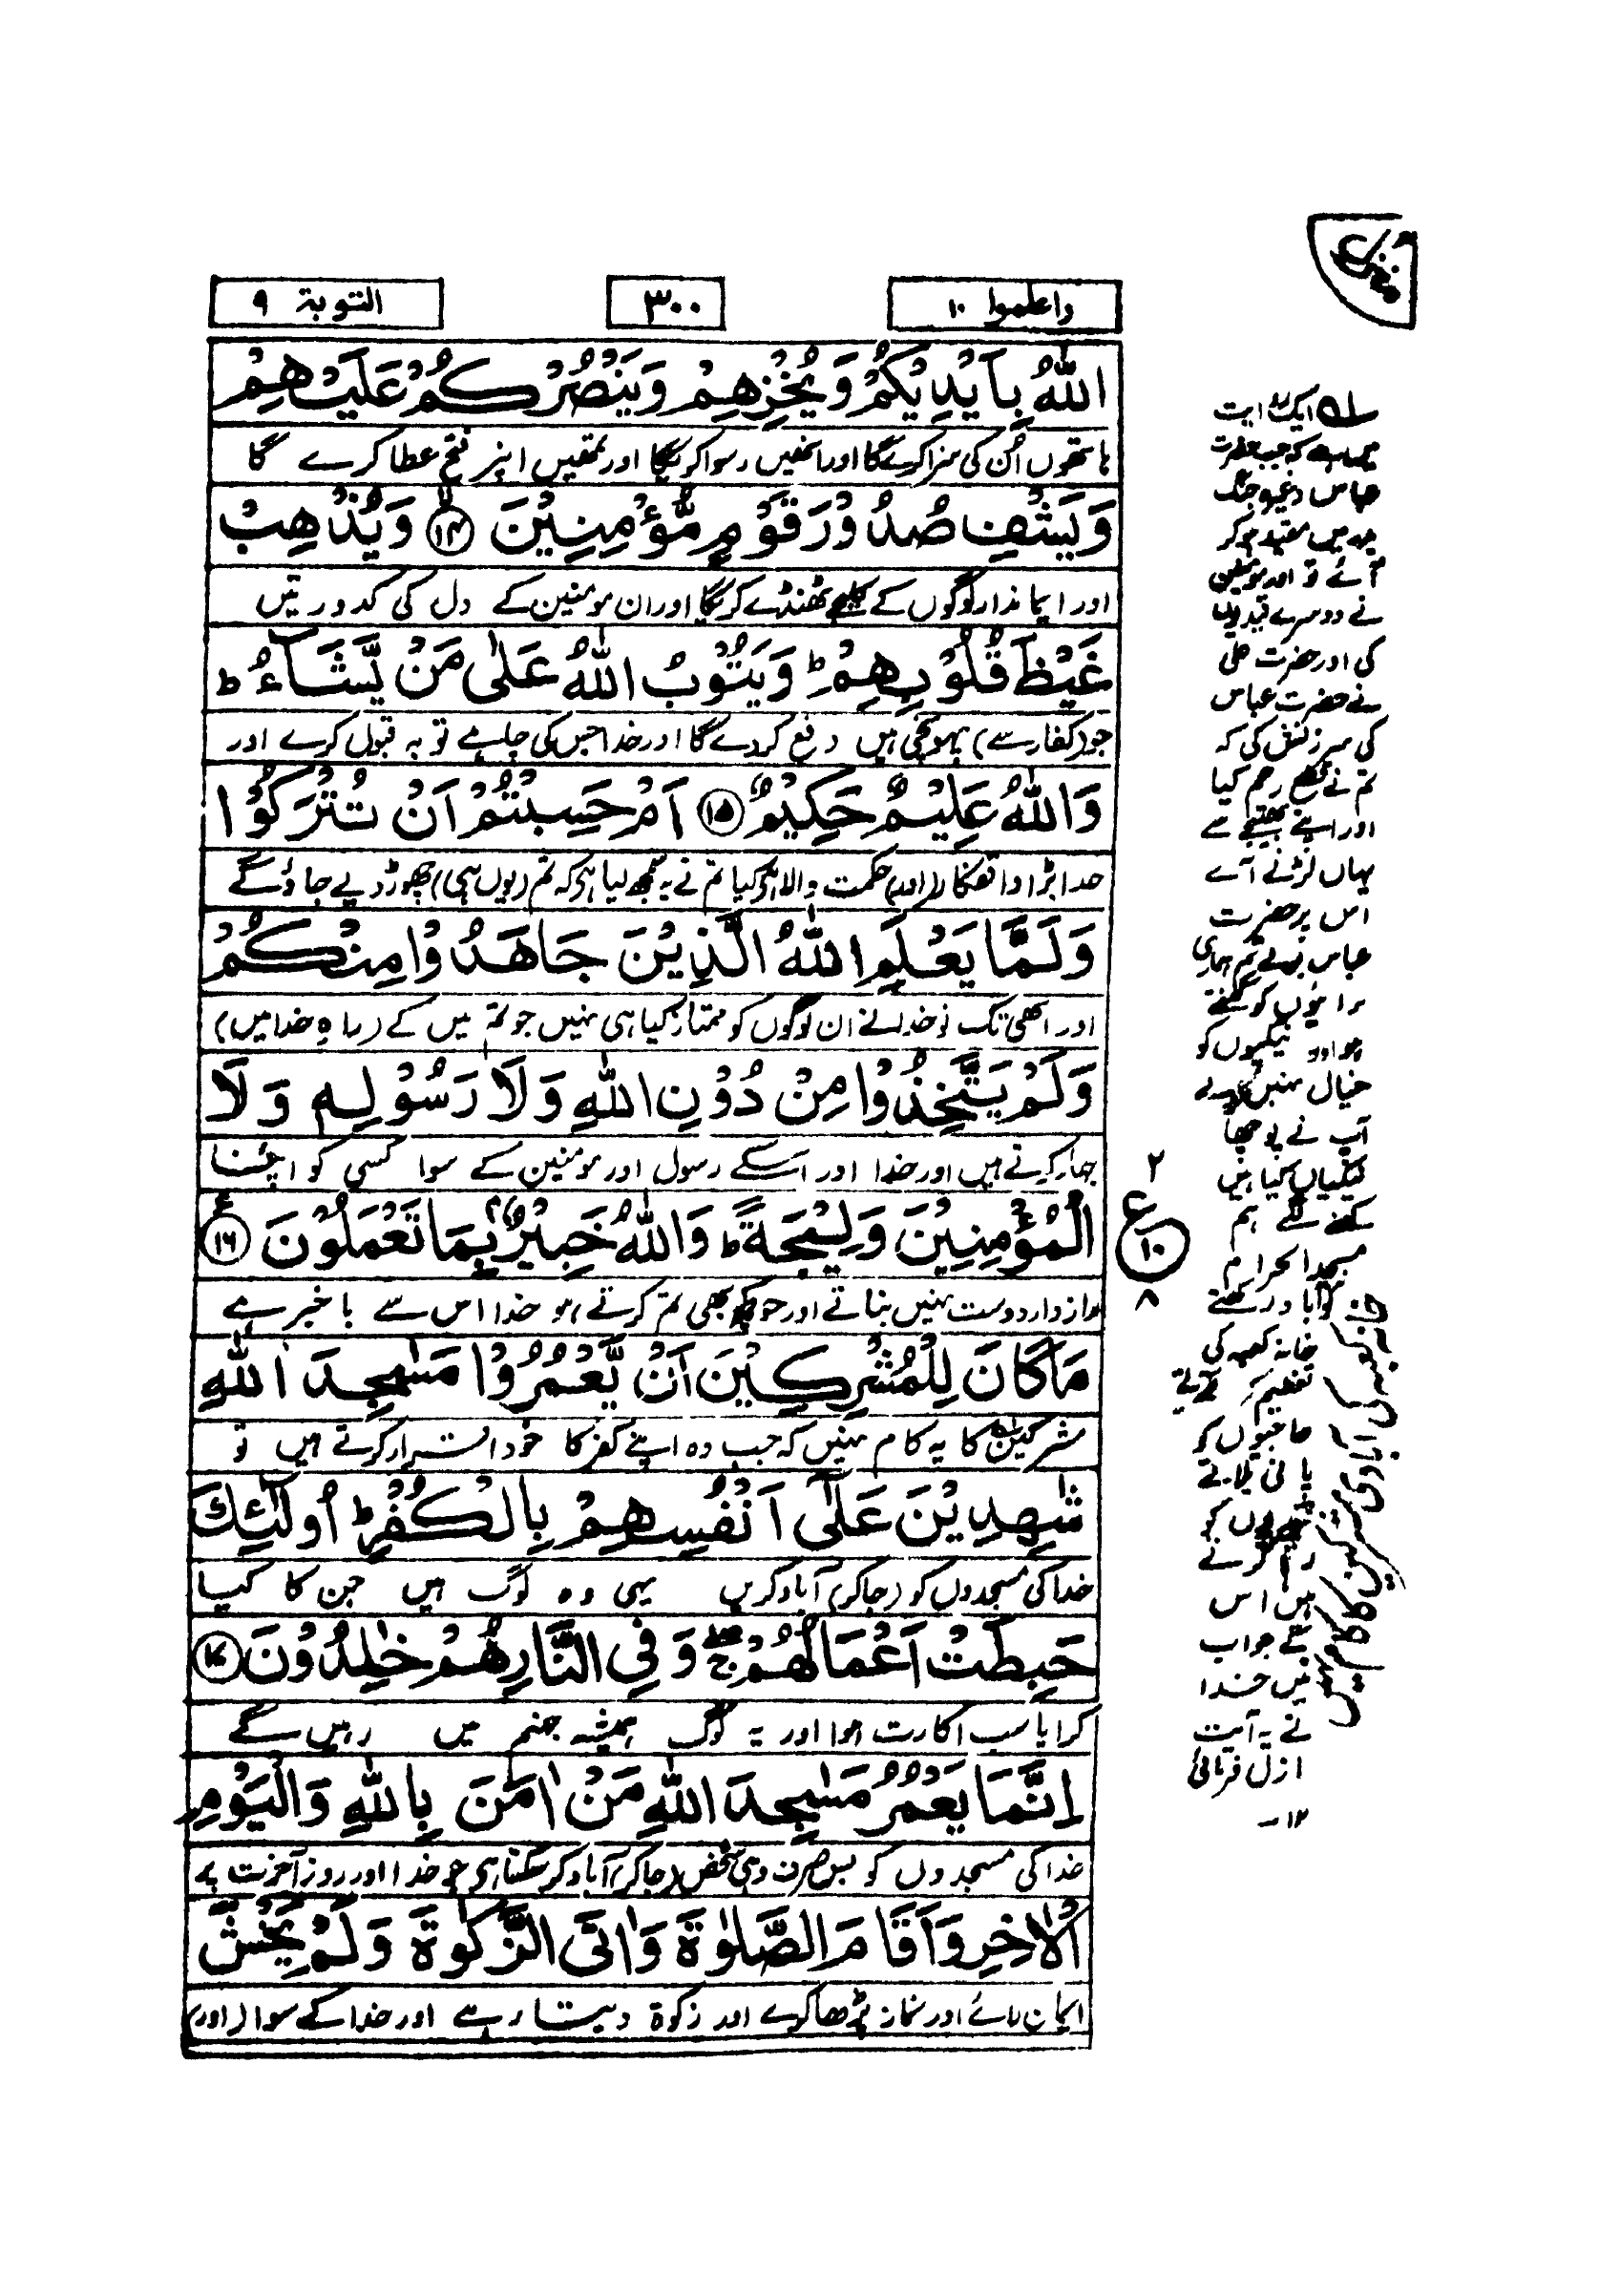 واعلموا ۱۰
۳۰۰
التوبة ۹
اللّٰهُ بِاَيْدِيْكُمْ وَيُخْزِهِمْ وَيَنْصُرْكُمْ عَلَيْهِمْ
ہاتھوں اُن کی سزا کرے گا اور انھیں رسوا کریگا اور تمھیں اپنر فتح عطا کرے گا
وَيَشْفِ صُدُوْرَ قَوْمٍ مُّؤْمِنِيْنَ ۙ ۱۴ وَيُذْهِبْ
اور ایماندار لوگوں کے کلیجے ٹھنڈے کریگا اور ان مومنین کے دل کی کدورتیں
غَيْظَ قُلُوْبِهِمْ ؕ وَيَتُوْبُ اللّٰهُ عَلٰى مَنْ يَّشَآءُ ؕ
جو (کفار سے) پہونچی ہیں دفع کردے گا اور خدا جس کی چاہے توبہ قبول کرے اور
وَاللّٰهُ عَلِيْمٌ حَكِيْمٌ ۱۵ اَمْ حَسِبْتُمْ اَنْ تُتْرَكُوْا
خدا بڑا واقفکار (اور) حکمت والا ہی کیا تم نے یہ سمجھ لیا ہی کہ تم (یوں ہی) چھوڑ دیے جاؤ گے
وَلَمَّا يَعْلَمِ اللّٰهُ الَّذِيْنَ جَاهَدُوْا مِنْكُمْ
اور ابھی تک تو خدا نے ان لوگوں کو ممتاز کیا ہی نہیں جو تم میں کے (راہ خدا میں)
وَلَمْ يَتَّخِذُوْا مِنْ دُوْنِ اللّٰهِ وَلَا رَسُوْلِهٖ وَلَا
جہاد کرتے ہیں اور خدا اور اسکے رسول اور مومنین کے سوا کسی کو اپنا
الْمُؤْمِنِيْنَ وَلِيْجَةً ؕ وَاللّٰهُ خَبِيْرٌۢ بِمَا تَعْمَلُوْنَ ۱۶
رازدار دوست نہیں بناتے اور جو کچھ بھی تم کرتے ہو خدا اس سے باخبر ہے
مَا كَانَ لِلْمُشْرِكِيْنَ اَنْ يَّعْمُرُوْا مَسٰجِدَ اللّٰهِ
مشرکین کا یہ کام نہیں کہ جب وہ اپنے کفر کا خود اقرار کرتے ہیں تو
شٰهِدِيْنَ عَلٰٓى اَنْفُسِهِمْ بِالْكُفْرِ ؕ اُولٰٓئِكَ
خدا کی مسجدوں کو (جاکر) آباد کریں یہی وہ لوگ ہیں جن کا کیا
حَبِطَتْ اَعْمَالُهُمْ ۖۚ وَفِى النَّارِ هُمْ خٰلِدُوْنَ ۱۷
کرایا سب اکارت ہوا اور یہ لوگ ہمیشہ جہنم میں رہیں گے
اِنَّمَا يَعْمُرُ مَسٰجِدَ اللّٰهِ مَنْ اٰمَنَ بِاللّٰهِ وَالْيَوْمِ
خدا کی مسجدوں کو بس صرف وہی شخص (جاکر) آباد کر سکتا ہی جو خدا اور روز آخرت پر
الْاٰخِرِ وَاَقَامَ الصَّلٰوةَ وَاٰتَى الزَّكٰوةَ وَلَمْ يَخْشَ
ایمان لائے اور نماز پڑھا کرے اور زکوة دیتا رہے اور خدا کے سوا (اور)
۲
ع
۱۰
۸
ایک روایت
میں ہے کہ جب حضرت
عباس وغیرہ جنگ
بدر میں مقید ہو کر
آئے تو اور مومنین
نے دوسرے قیدیوں
کی اور حضرت علی
نے حضرت عباس
کی سرزنش کی کہ
تم نے قطع رحم کیا
اور اپنے بھتیجے سے
یہاں لڑنے آے
اس پر حضرت
عباس بولے تم ہماری
برائیوں کو گنتے
ہو اور نیکیوں کو
خیال نہیں کرتے
آپ نے پوچھا
نیکیاں کیا ہیں
کہنے لگے ہم
مسجد الحرام
کو آباد رکھتے
خانہ کعبہ کی
تعظیم کرتے
حاجیوں کو
پانی پلاتے
قیدیوں کو
رہا کرتے
ہیں اس
کے جواب
میں خدا
نے یہ آیت
نازل فرمائی
۱۲ –